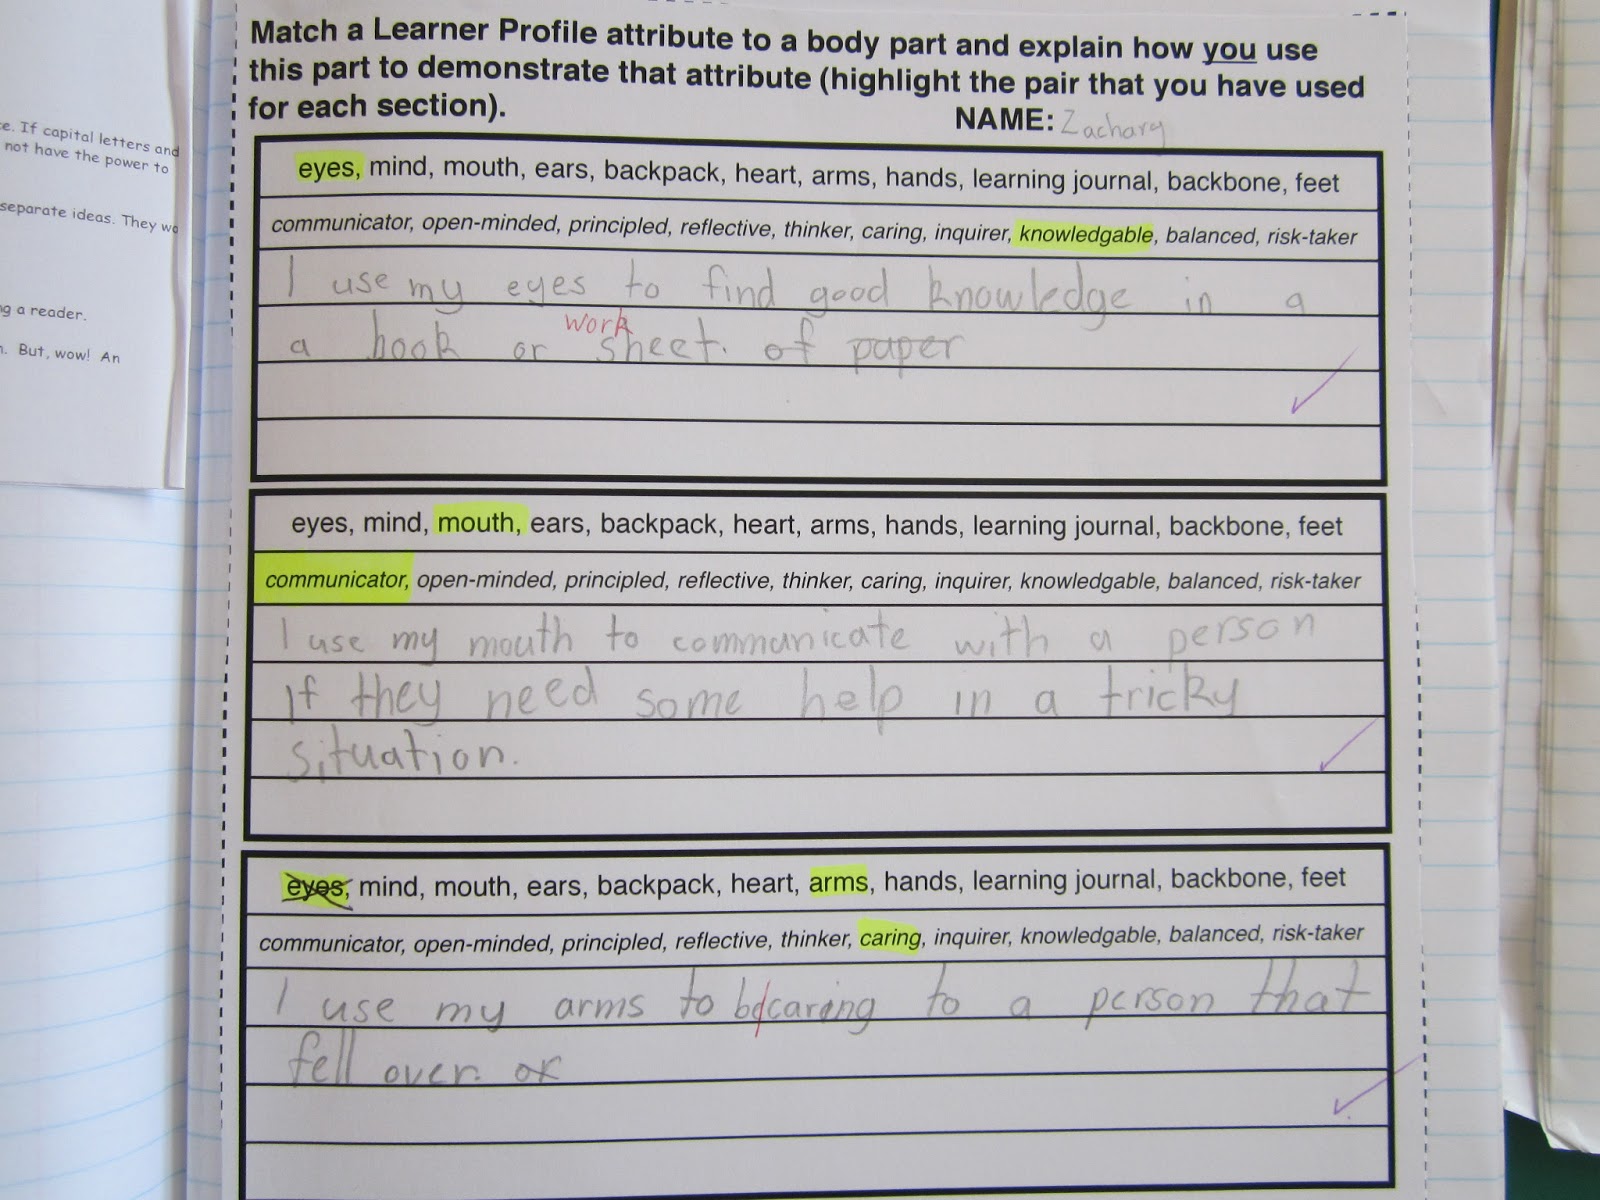 e. If capital letters and
not have the power to
separate ideas. They wo
ng a reader.
n. But, wow! An
Match a Learner Profile attribute to a body part and explain how you use
this part to demonstrate that attribute (highlight the pair that you have used
for each section).
NAME: Zachary
eyes, mind, mouth, ears, backpack, heart, arms, hands, learning journal, backbone, feet
communicator, open-minded, principled, reflective, thinker, caring, inquirer, knowledgable, balanced, risk-taker
I use my eyes to find good knowledge in a
work
a book or sheet. of paper
eyes, mind, mouth, ears, backpack, heart, arms, hands, learning journal, backbone, feet
communicator, open-minded, principled, reflective, thinker, caring, inquirer, knowledgable, balanced, risk-taker
I use my mouth to communicate with a person
If they need some help in a tricky
situation.
eyes, mind, mouth, ears, backpack, heart, arms, hands, learning journal, backbone, feet
communicator, open-minded, principled, reflective, thinker, caring, inquirer, knowledgable, balanced, risk-taker
I use my arms to be caring to a person that
fell over. or